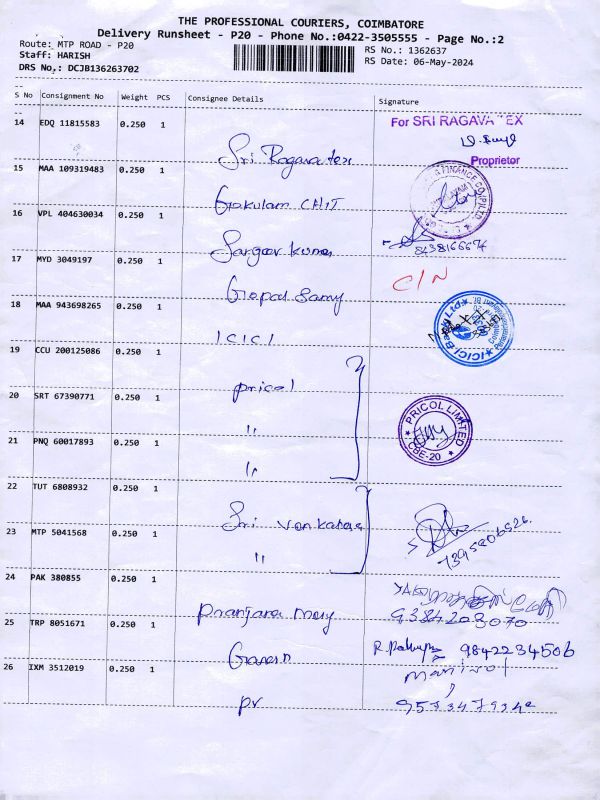 THE PROFESSIONAL COURIERS, COIMBATORE
Delivery Runsheet - P20 - Phone No.:0422-3505555 - Page No.:2
Route: MTP ROAD - P20
RS No.: 1362637
Staff: HARISH
RS Date: 06-May-2024
DRS No,: DCJB136263702
S No Consignment No Weight PCS Consignee Details Signature
14 EDQ 11815583 0.250 1
For SRI RAGAVA TEX
Proprietor
Sri Ragavatex
15 MAA 109319483 0.250 1
Gokulam CHIT
16 VPL 404630034 0.250 1
17 MYD 3049197 0.250 1
C/N
Gopal Samy
18 MAA 943698265 0.250 1
ICICI
ICICI Bank Ltd.
19 CCU 200125086 0.250 1
pricol
20 SRT 67390771 0.250 1
"
PRICOL LIMITED
CBE-20
21 PNQ 60017893 0.250 1
"
22 TUT 6808932 0.250 1
Sri
23 MTP 5041568 0.250 1
"
7395806526.
24 PAK 380855 0.250 1
9384203070
25 TRP 8051671 0.250 1
Ganesh
9842234506
26 IXM 3512019 0.250 1
pv